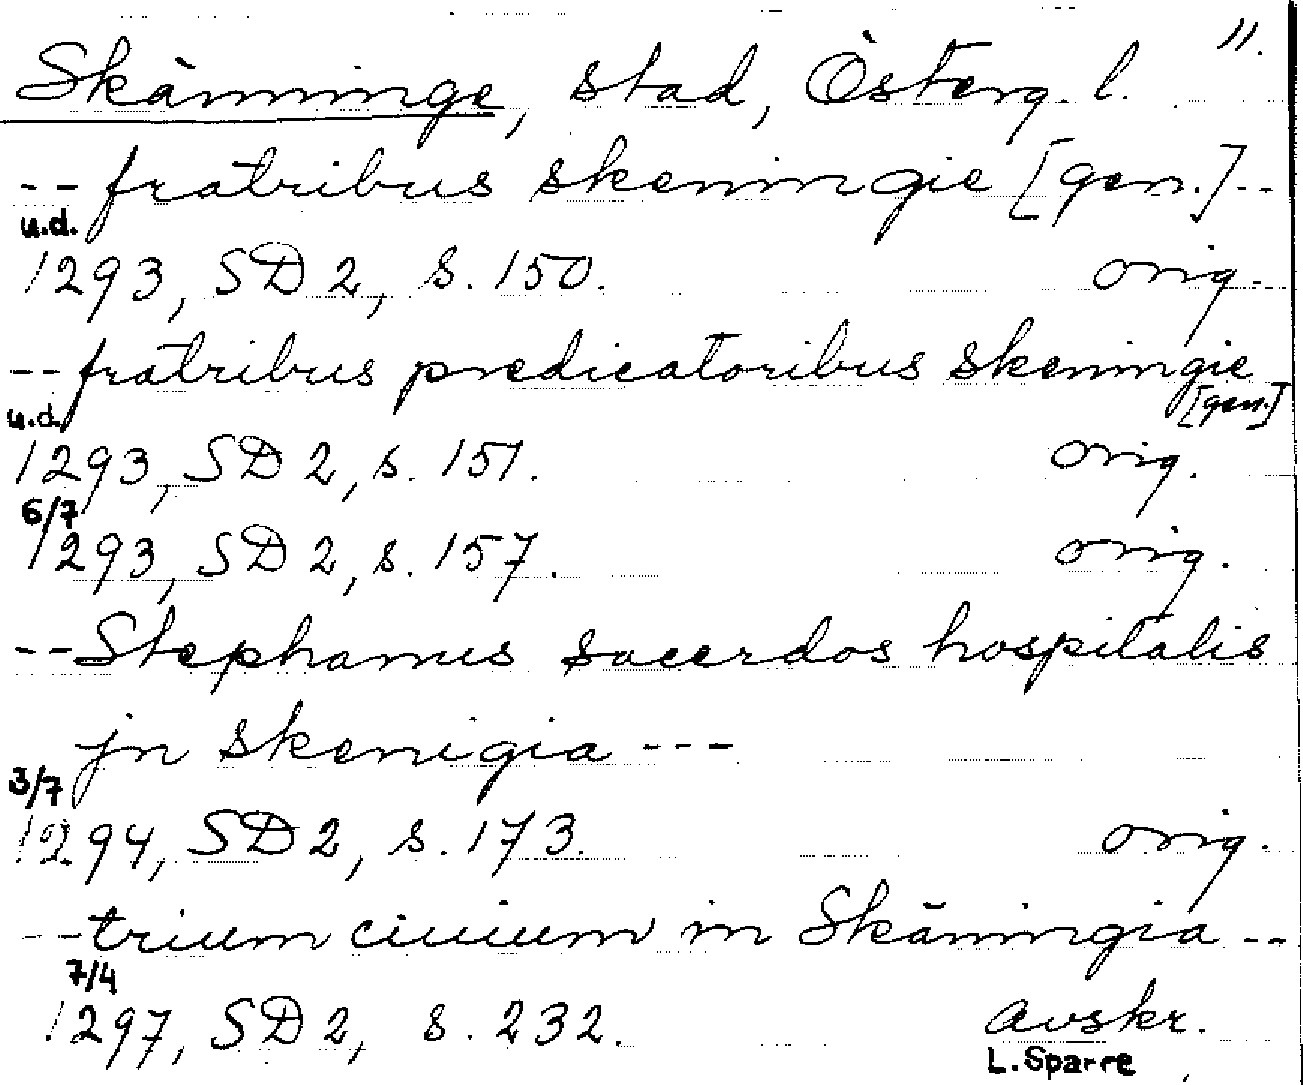 11.
Skänninge, stad, Österg. l.
-- fratribus skeningie [gen.] --
u.d.
1293, SD 2, s. 150. orig.
-- fratribus predicatoribus skeningie
[gen.]
u.d.
1293, SD 2, s. 151. orig.
6/7
1293, SD 2, s. 157. orig.
-- Stephanus sacerdos hospitalis
jn skenigia ---
3/7
1294, SD 2, s. 173. orig.
-- trium ciuium in Skäningia --
7/4
1297, SD 2, s. 232. avskr.
L. Sparre